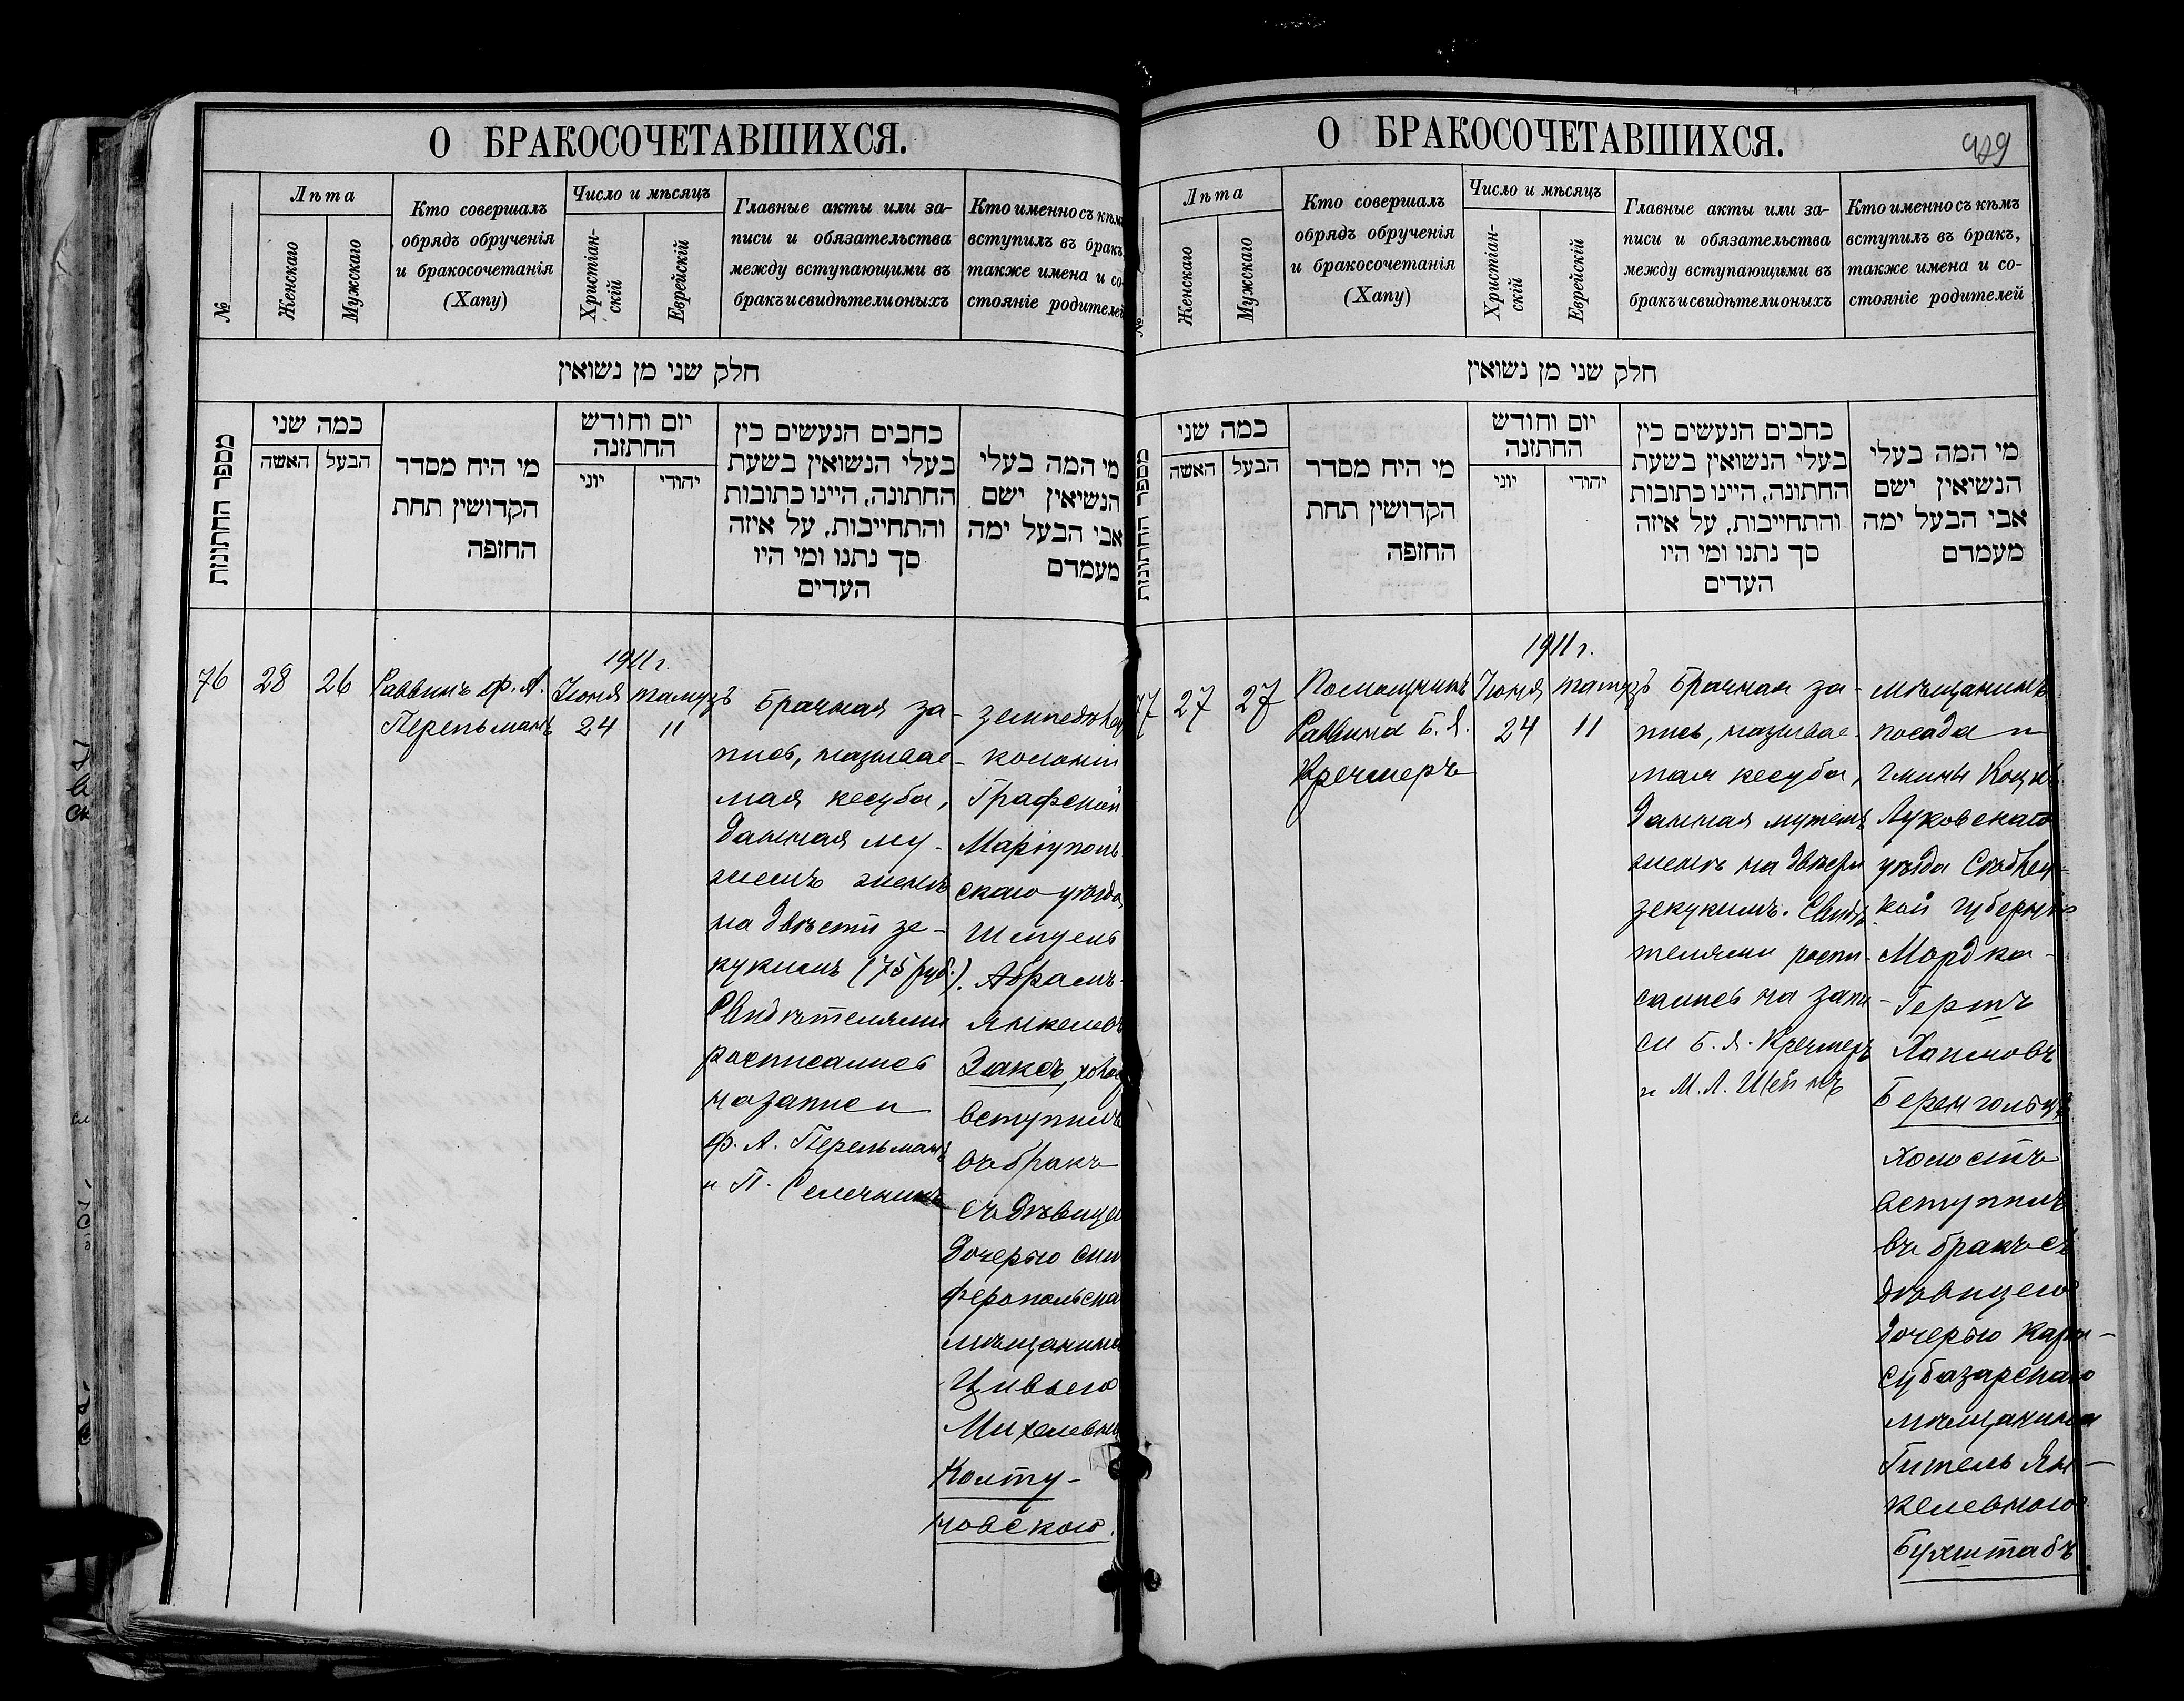 О БРАКОСОЧЕТАВШИХСЯ.
№
Лѣта
Женскаго
Мужскаго
Кто совершалъ
обрядъ обрученія
и бракосочетанія
(Хапу)
Число и мѣсяцъ
Христіан-
скій
Еврейскій
Главные акты или за-
писи и обязательства
между вступающими въ
бракъ и свидѣтели оныхъ
Кто именно съ кѣмъ
вступилъ въ бракъ,
также имена и со-
стояніе родителей
חלק שני מן נשואין
מספר החתונות
כמה שני
האשה
הבעל
מי היח מסדר
הקדושין תחת
החזפה
יום וחודש
החתזנה
יוני
יהודי
כחבים הנעשים כין
בעלי הנשואין בשעת
החתונה, היינו כתובות
והתחייבות, על איזה
סך נתנו ומי היו
העדים
מי המה בעלי
הנשיאין ישם
אבי הבעל ימה
מעמדם
76
28
26
Раввинъ Ф. А.
Перельманъ
1911 г.
Іюня
24
тамузъ
11
Брачная за-
пись, называе-
мая кесуба,
данная му-
жемъ женѣ
на двѣсти зе-
кукимъ (75 руб.).
Свидѣтелями
росписались
на записи
Ф. А. Перельманъ
и П.
колоніи
Графской
Маріуполь-
скаго уѣзда
Шмуель
Абрамъ-
Янкелевъ
Заксъ,
вступилъ
въ бракъ
съ дѣвицею
дочерью сим
феропольска
мѣщанина
Цивьею
Михелевн
Колту-
новскою.
О БРАКОСОЧЕТАВШИХСЯ.
№
Лѣта
Женскаго
Мужскаго
Кто совершалъ
обрядъ обрученія
и бракосочетанія
(Хапу)
Число и мѣсяцъ
Христіан-
скій
Еврейскій
Главные акты или за-
писи и обязательства
между вступающими въ
бракъ и свидѣтели оныхъ
Кто именно съ кѣмъ
вступилъ въ бракъ,
также имена и со-
стояніе родителей
חלק שני מן נשואין
מספר החתונות
כמה שני
האשה
הבעל
מי היח מסדר
הקדושין תחת
החזפה
יום וחודש
החתזנה
יוני
יהודי
כחבים הנעשים כין
בעלי הנשואין בשעת
החתונה, היינו כתובות
והתחייבות, על איזה
סך נתנו ומי היו
העדים
מי המה בעלי
הנשיאין ישם
אבי הבעל ימה
מעמדם
77
27
27
Помощникъ
Раввина Б. Я.
Кречмеръ
1911 г.
Іюня
24
тамузъ
11
Брачная за-
пись, называе-
мая кесуба,
данная мужемъ
женѣ на двѣсти
зекукимъ. Свидѣ
телями роспи-
сались на запи-
си Б. Я. Кречмеръ
и М. Л. Шейнъ
мѣщанинъ
посада и
гмины Коцкъ
Луковскаго
уѣзда Сѣдлец-
кой губерніи
Мордка-
Гершъ
Хаимовъ
Беренгольцъ
холостъ
вступилъ
въ бракъ съ
дѣвицею
дочерью кара-
субазарскаго
мѣщанина
Гитель Ян-
келевною
Бухштабъ